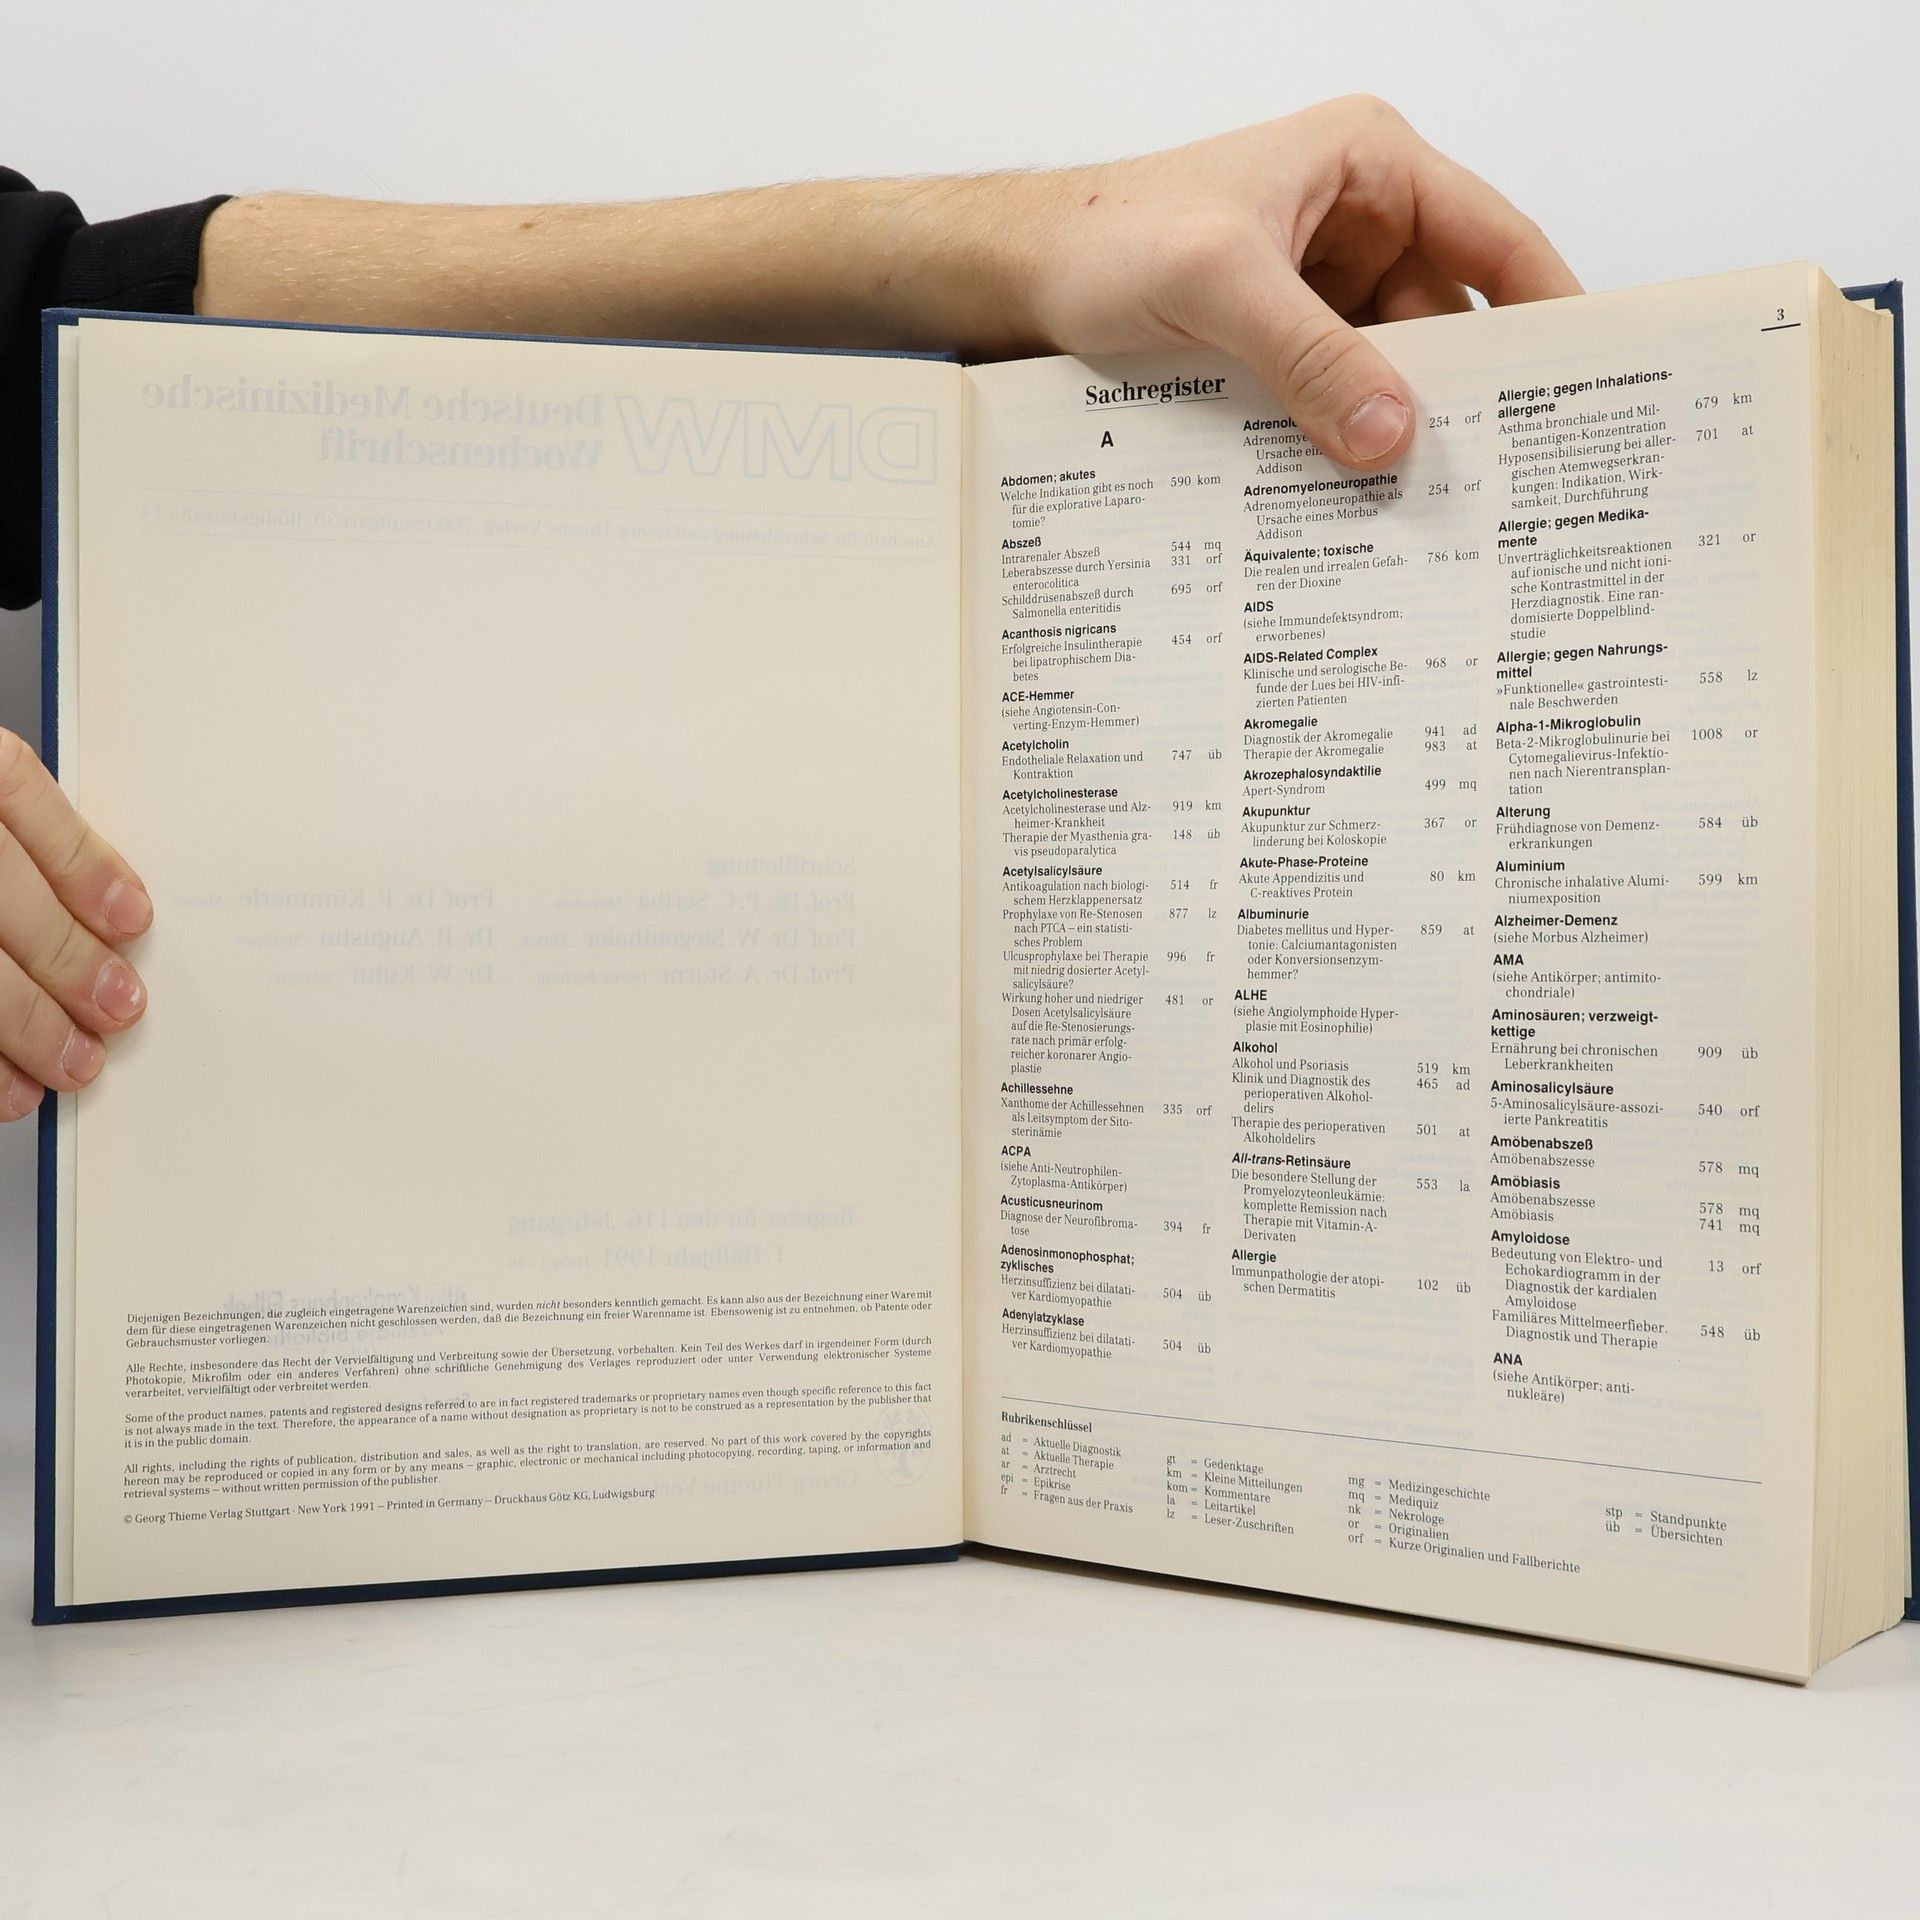 Diejenigen Bezeichnungen, die zugleich eingetragene Warenzeichen sind, wurden nicht besonders kenntlich gemacht. Es kann also aus der Bezeichnung einer Ware mit
dem für diese eingetragenen Warenzeichen nicht geschlossen werden, daß die Bezeichnung ein freier Warenname ist. Ebensowenig ist zu entnehmen, ob Patente oder
Gebrauchsmuster vorliegen.
Alle Rechte, insbesondere das Recht der Vervielfältigung und Verbreitung sowie der Übersetzung, vorbehalten. Kein Teil des Werkes darf in irgendeiner Form (durch
Photokopie, Mikrofilm oder ein anderes Verfahren) ohne schriftliche Genehmigung des Verlages reproduziert oder unter Verwendung elektronischer Systeme
verarbeitet, vervielfältigt oder verbreitet werden.
Some of the product names, patents and registered designs referred to are in fact registered trademarks or proprietary names even though specific reference to this fact
is not always made in the text. Therefore, the appearance of a name without designation as proprietary is not to be construed as a representation by the publisher that
it is in the public domain.
All rights, including the rights of publication, distribution and sales, as well as the right to translation, are reserved. No part of this work covered by the copyrights
hereon may be reproduced or copied in any form or by any means – graphic, electronic or mechanical including photocopying, recording, taping, or information and
retrieval systems – without written permission of the publisher.
© Georg Thieme Verlag Stuttgart · New York 1991 – Printed in Germany – Druckhaus Götz KG, Ludwigsburg
3
Sachregister
A
Abdomen; akutes
Welche Indikation gibt es noch 590 kom
für die explorative Laparo-
tomie?
Abszeß
Intrarenaler Abszeß 544 mq
Leberabszesse durch Yersinia 331 orf
enterocolitica
Schilddrüsenabszeß durch 695 orf
Salmonella enteritidis
Acanthosis nigricans
Erfolgreiche Insulintherapie 454 orf
bei lipatrophischem Dia-
betes
ACE-Hemmer
(siehe Angiotensin-Con-
verting-Enzym-Hemmer)
Acetylcholin
Endotheliale Relaxation und 747 üb
Kontraktion
Acetylcholinesterase
Acetylcholinesterase und Alz- 919 km
heimer-Krankheit
Therapie der Myasthenia gra- 148 üb
vis pseudoparalytica
Acetylsalicylsäure
Antikoagulation nach biologi- 514 fr
schem Herzklappenersatz
Prophylaxe von Re-Stenosen 877 lz
nach PTCA – ein statisti-
sches Problem
Ulcusprophylaxe bei Therapie 996 fr
mit niedrig dosierter Acetyl-
salicylsäure?
Wirkung hoher und niedriger 481 or
Dosen Acetylsalicylsäure
auf die Re-Stenosierungs-
rate nach primär erfolg-
reicher koronarer Angio-
plastie
Achillessehne
Xanthome der Achillessehnen 335 orf
als Leitsymptom der Sito-
sterinämie
ACPA
(siehe Anti-Neutrophilen-
Zytoplasma-Antikörper)
Acusticusneurinom
Diagnose der Neurofibroma- 394 fr
tose
Adenosinmonophosphat;
zyklisches
Herzinsuffizienz bei dilatati- 504 üb
ver Kardiomyopathie
Adenylatzyklase
Herzinsuffizienz bei dilatati- 504 üb
ver Kardiomyopathie
254 orf
Ursache
Addison
Adrenomyeloneuropathie
Adrenomyeloneuropathie als 254 orf
Ursache eines Morbus
Addison
Äquivalente; toxische
Die realen und irrealen Gefah- 786 kom
ren der Dioxine
AIDS
(siehe Immundefektsyndrom;
erworbenes)
AIDS-Related Complex
Klinische und serologische Be- 968 or
funde der Lues bei HIV-infi-
zierten Patienten
Akromegalie
Diagnostik der Akromegalie 941 ad
Therapie der Akromegalie 983 at
Akrozephalosyndaktilie
Apert-Syndrom 499 mq
Akupunktur
Akupunktur zur Schmerz- 367 or
linderung bei Koloskopie
Akute-Phase-Proteine
Akute Appendizitis und 80 km
C-reaktives Protein
Albuminurie
Diabetes mellitus und Hyper- 859 at
tonie: Calciumantagonisten
oder Konversionsenzym-
hemmer?
ALHE
(siehe Angiolymphoide Hyper-
plasie mit Eosinophilie)
Alkohol
Alkohol und Psoriasis 519 km
Klinik und Diagnostik des 465 ad
perioperativen Alkohol-
delirs
Therapie des perioperativen 501 at
Alkoholdelirs
All-trans-Retinsäure
Die besondere Stellung der 553 la
Promyelozytenleukämie:
komplette Remission nach
Therapie mit Vitamin-A-
Derivaten
Allergie
Immunpathologie der atopi- 102 üb
schen Dermatitis
Allergie; gegen Inhalations-
allergene
Asthma bronchiale und Mil- 679 km
benantigen-Konzentration
Hyposensibilisierung bei aller- 701 at
gischen Atemwegserkran-
kungen: Indikation, Wirk-
samkeit, Durchführung
Allergie; gegen Medika-
mente
Unverträglichkeitsreaktionen 321 or
auf ionische und nicht ioni-
sche Kontrastmittel in der
Herzdiagnostik. Eine ran-
domisierte Doppelblind-
studie
Allergie; gegen Nahrungs-
mittel
»Funktionelle« gastrointesti- 558 lz
nale Beschwerden
Alpha-1-Mikroglobulin
Beta-2-Mikroglobulinurie bei 1008 or
Cytomegalievirus-Infektio-
nen nach Nierentransplan-
tation
Alterung
Frühdiagnose von Demenz- 584 üb
erkrankungen
Aluminium
Chronische inhalative Alumi- 599 km
niumexposition
Alzheimer-Demenz
(siehe Morbus Alzheimer)
AMA
(siehe Antikörper; antimito-
chondriale)
Aminosäuren; verzweigt-
kettige
Ernährung bei chronischen 909 üb
Leberkrankheiten
Aminosalicylsäure
5-Aminosalicylsäure-assozi- 540 orf
ierte Pankreatitis
Amöbenabszeß
Amöbenabszesse 578 mq
Amöbiasis
Amöbenabszesse 578 mq
Amöbiasis 741 mq
Amyloidose
Bedeutung von Elektro- und 13 orf
Echokardiogramm in der
Diagnostik der kardialen
Amyloidose
Familiäres Mittelmeerfieber. 548 üb
Diagnostik und Therapie
ANA
(siehe Antikörper; anti-
nukleäre)
Rubrikenschlüssel
ad = Aktuelle Diagnostik
at = Aktuelle Therapie
ar = Arztrecht
epi = Epikrise
fr = Fragen aus der Praxis
gt = Gedenktage
km = Kleine Mitteilungen
kom = Kommentare
la = Leitartikel
lz = Leser-Zuschriften
mg = Medizingeschichte
mq = Mediquiz
nk = Nekrologe
or = Originalien
orf = Kurze Originalien und Fallberichte
stp = Standpunkte
üb = Übersichten